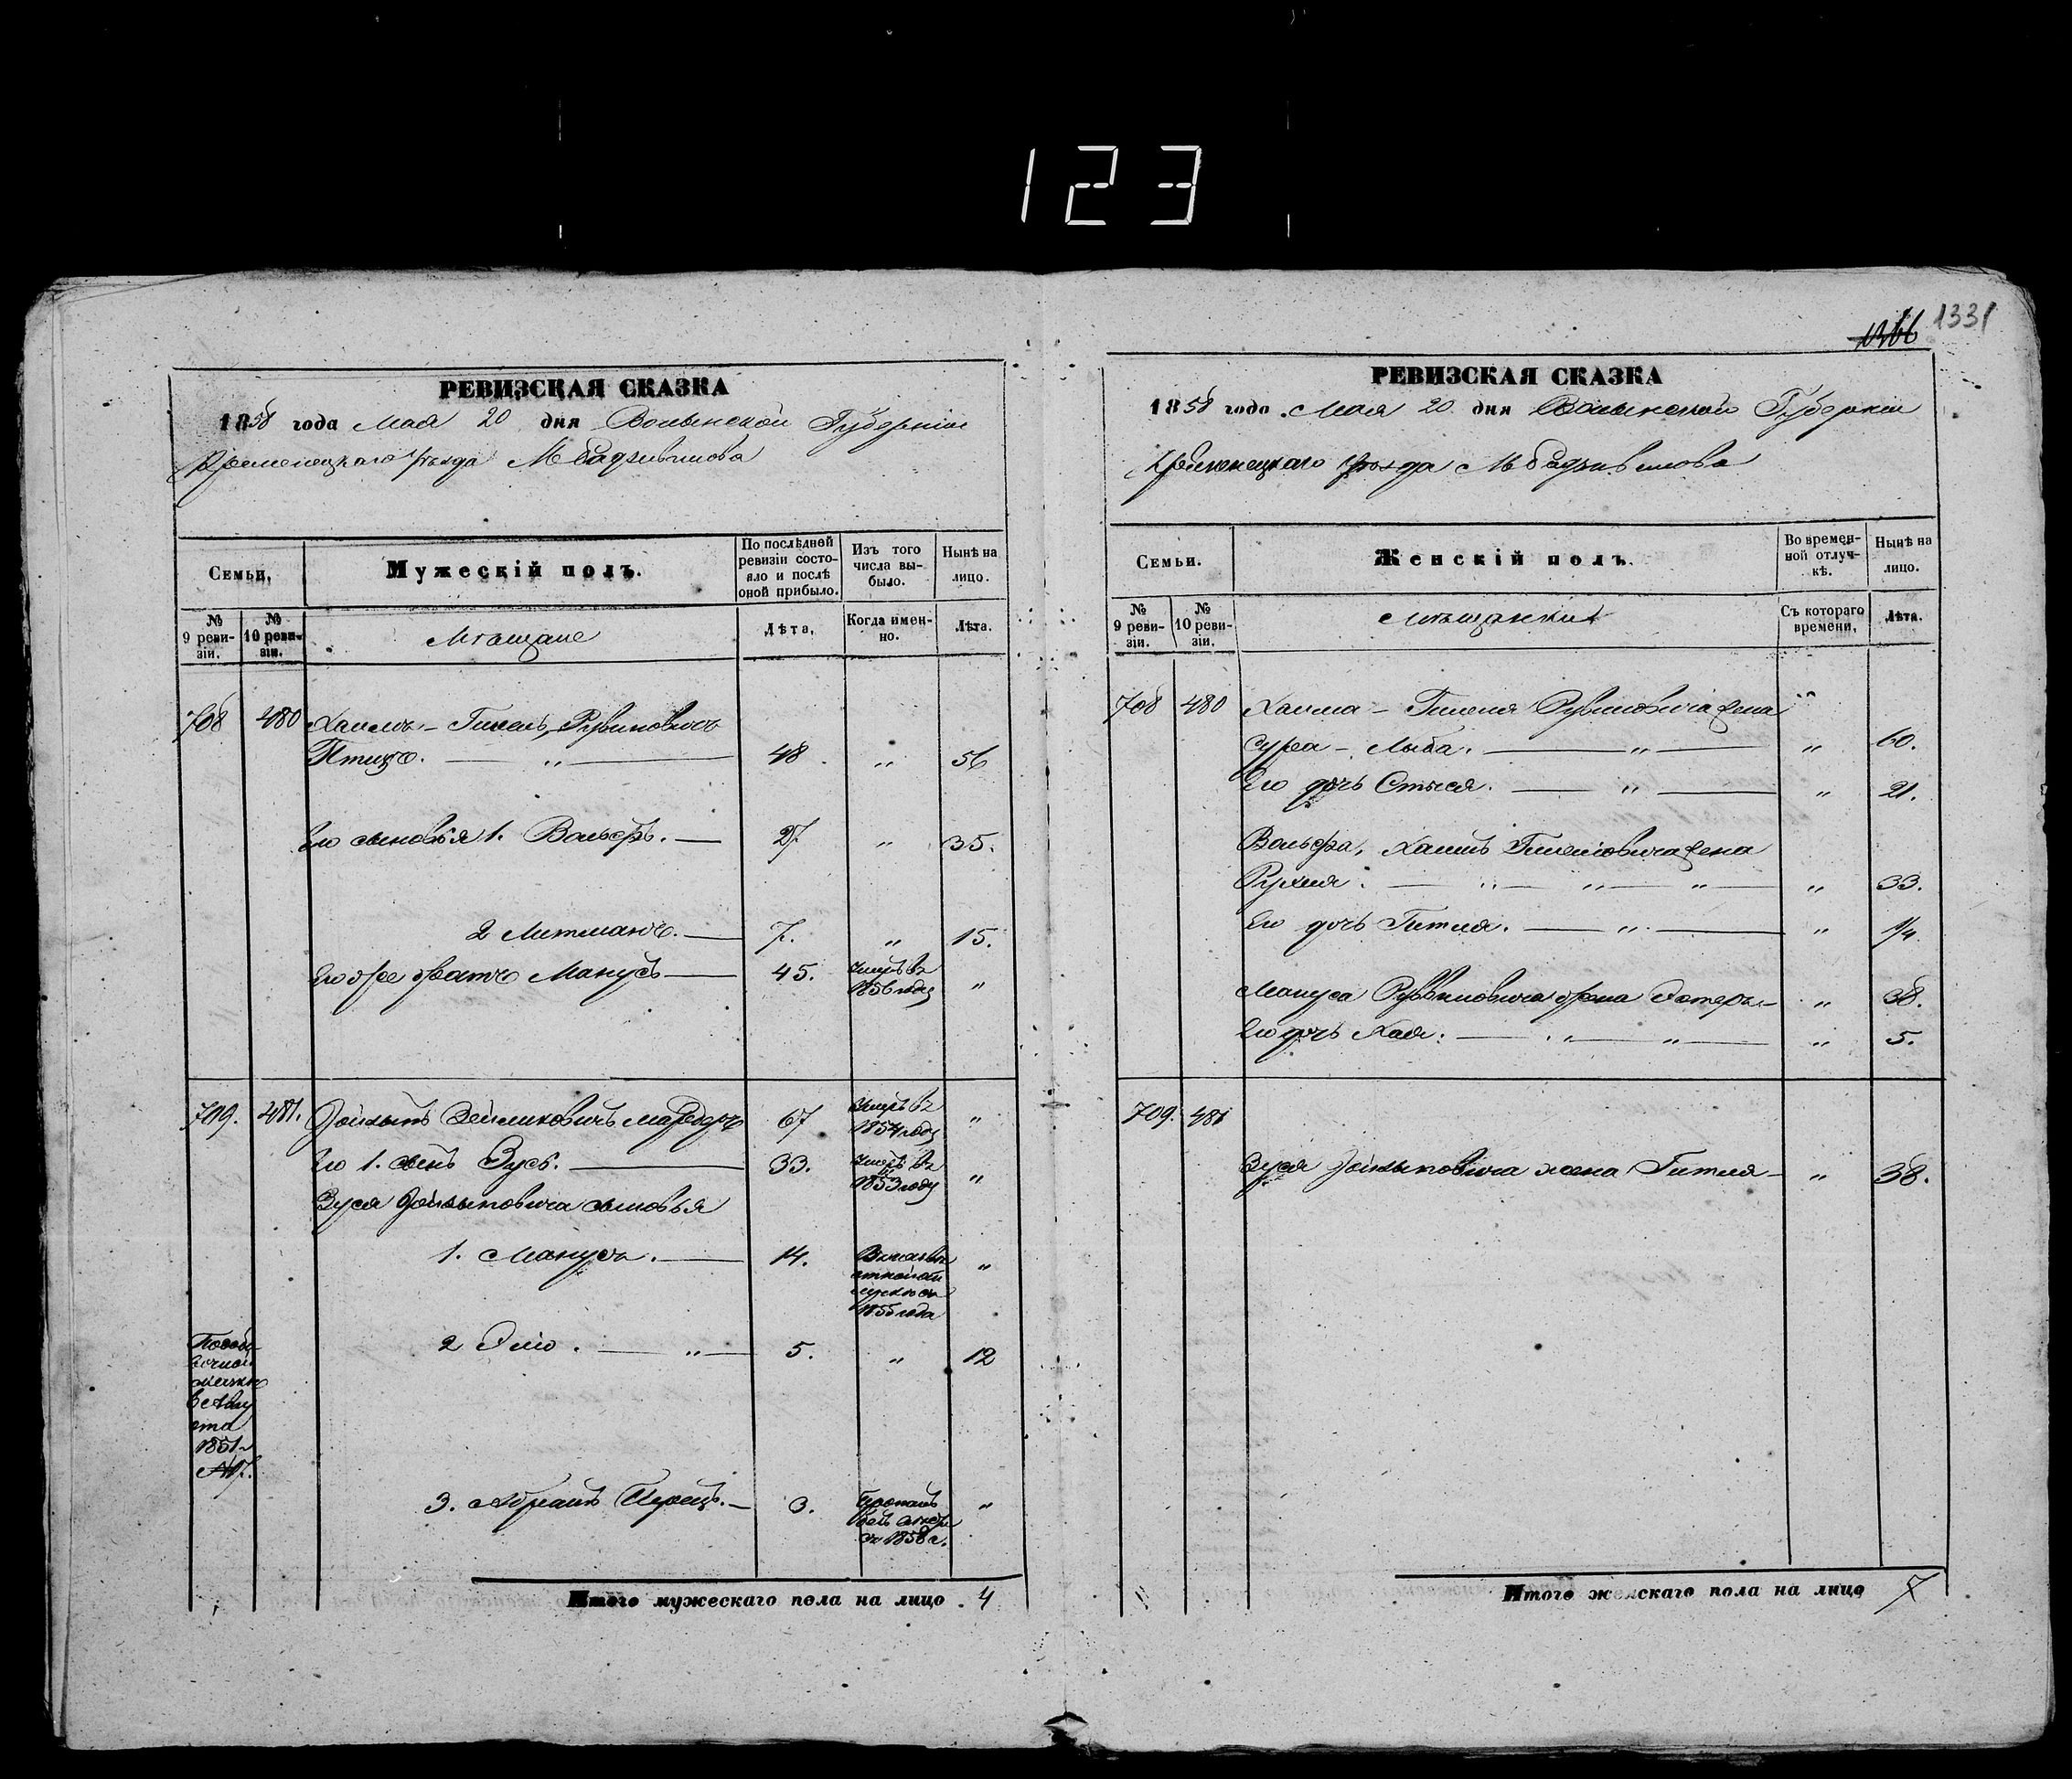 123
1366 1331
РЕВИЗСКАЯ СКАЗКА
1858 года Мая 20 дня Волынской Губерніи
Кременецкаго уѣзда М Радзивилова
Семьи,
Мужескій полъ.
По послѣдней ревизіи состояло и послѣ оной прибыло.
Изъ того числа выбыло.
Нынѣ на лицо.
№ 9 ревизіи.
№ 10 ревизіи.
Мѣщане
Лѣта,
Когда именно.
Лѣта.
708 480 Хаимъ-Гилель Рувиновичъ
Птицъ. — „ — 48 „ 56
Его сыновья 1. Вольфъ. — 27 „ 35.
2 Литманъ. — 7. „ 15.
Его же братъ Манусъ — 45. умеръ въ 1856 году „
709. 481. Зейликовичъ 67 умеръ въ 1854 году „
Его 1. сынъ Зусь. — 33. умеръ въ 1853 году „
Зуся сыновья
1. Манусъ. — 14. 1855 года „
2 Элio. — „ — 5. „ 12
августа
1851
№17.
3. Абрамъ Перецъ. — 3. съ 1858 г. „
Итого мужескаго пола на лицо . 4
РЕВИЗСКАЯ СКАЗКА
1858 года Мая 20 дня Волынской Губерніи
Кременецкаго уѣзда М Радзивилова
Семьи.
Женскій полъ.
Во временной отлучкѣ.
Нынѣ на лицо.
№ 9 ревизіи.
№ 10 ревизіи.
Мѣщанки
Съ котораго времени,
Лѣта.
708 480 Хаима-Гилеля Рувиновича жена „
Сура-Лыба. — „ — „ 60.
Его дочь Стыся. — „ — „ 21.
Вольфа, Хаимъ Гилеловича жена
Рухля. — „ — „ — „ — „ 33.
Его дочь Гитля. — „ — „ 1/4
Мануса Рувиновича жена Эстеръ — „ 38.
Его дочь Хая. — „ — „ — „ 5.
709. 481
Зуся жена Гитля — „ 38.
Итого женскаго пола на лицо 7